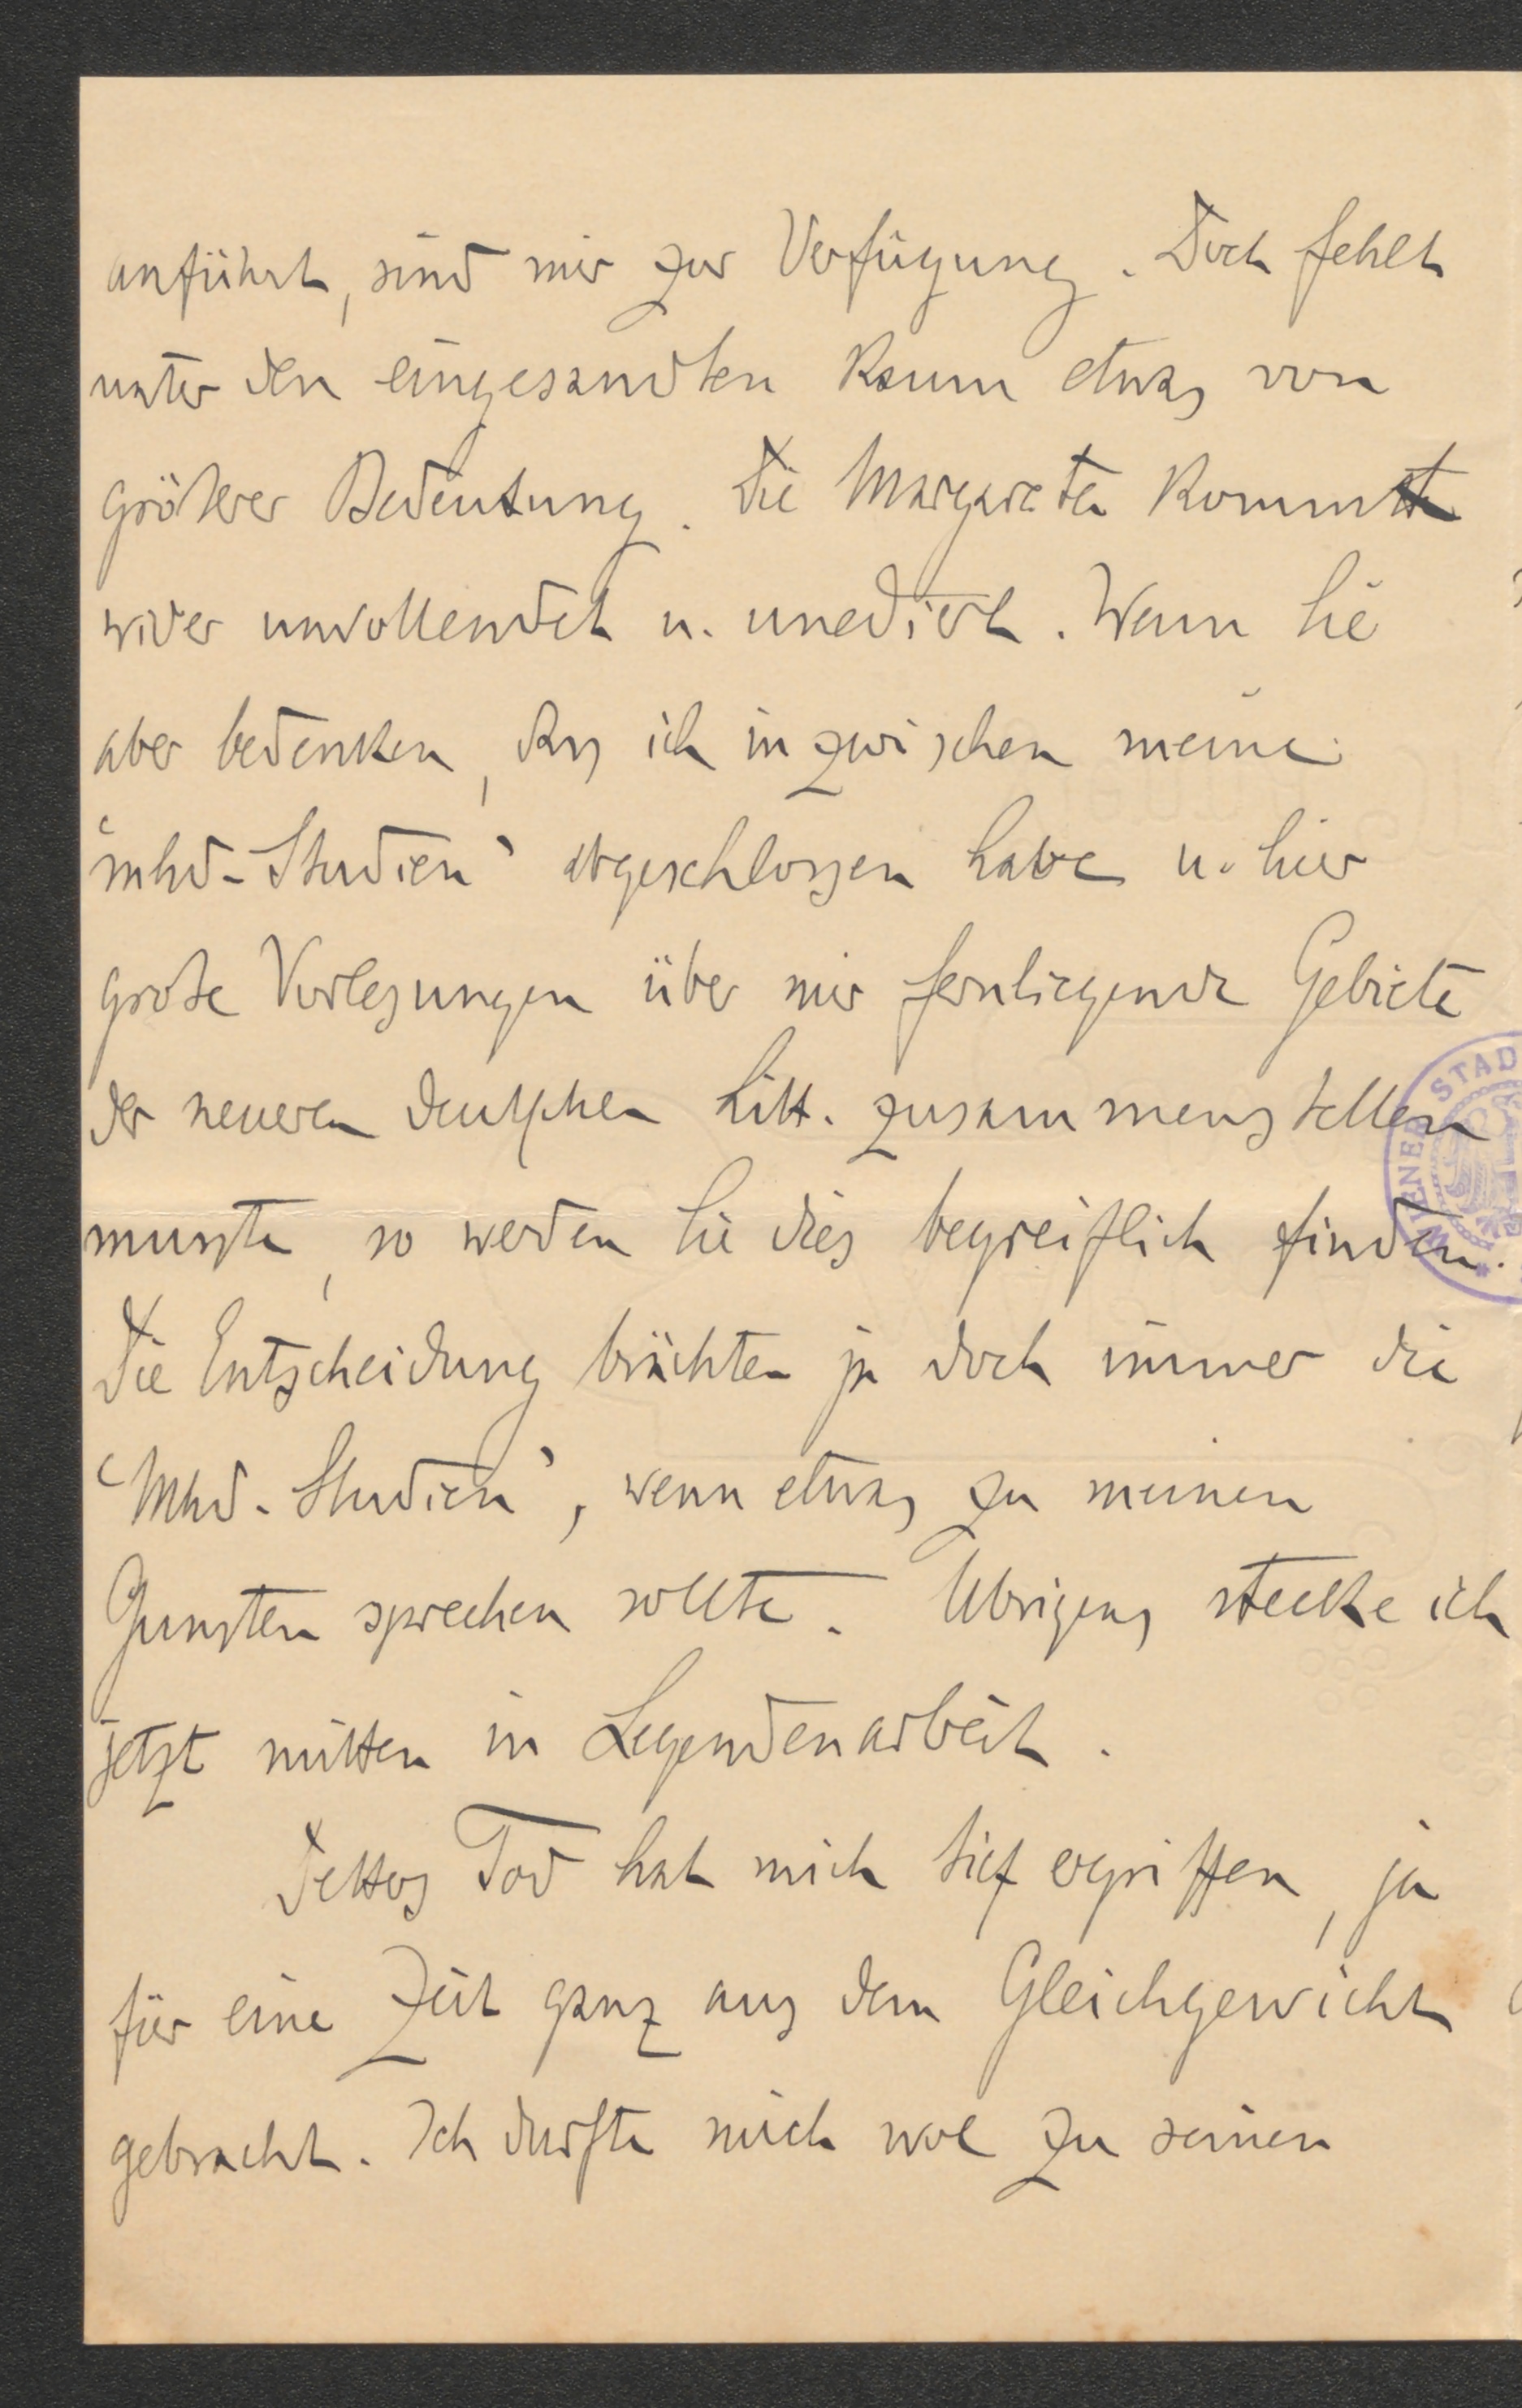 anführt, sind mir zur Verfügung. Doch fehlt
unter den eingesandten kaum etwas von
größerer Bedeutung. Die Margareta kommt
wider unvollendet u. unedirt. Wenn Sie
aber bedenken, das ich inzwischen meine
'mhd-Studien' abgeschlossen habe u. hier
große Vorlesungen über mir fernliegende Gebiete
der neueren deutschen Litt. zusammenstellen
musste, so werden Sie dies begreiflich finden.
Die Entscheidung brächten ja doch immer die
'Mhd. Studien', wenn etwas zu meinen
Gunsten sprechen sollte. Übrigens stecke ich
jetzt mitten in Legendenarbeit.
Detters Tod hat mich tief ergriffen, ja
für eine Zeit ganz aus dem Gleichgewicht
gebracht. Ich durfte mich wol zu seinen
WIENER STAD